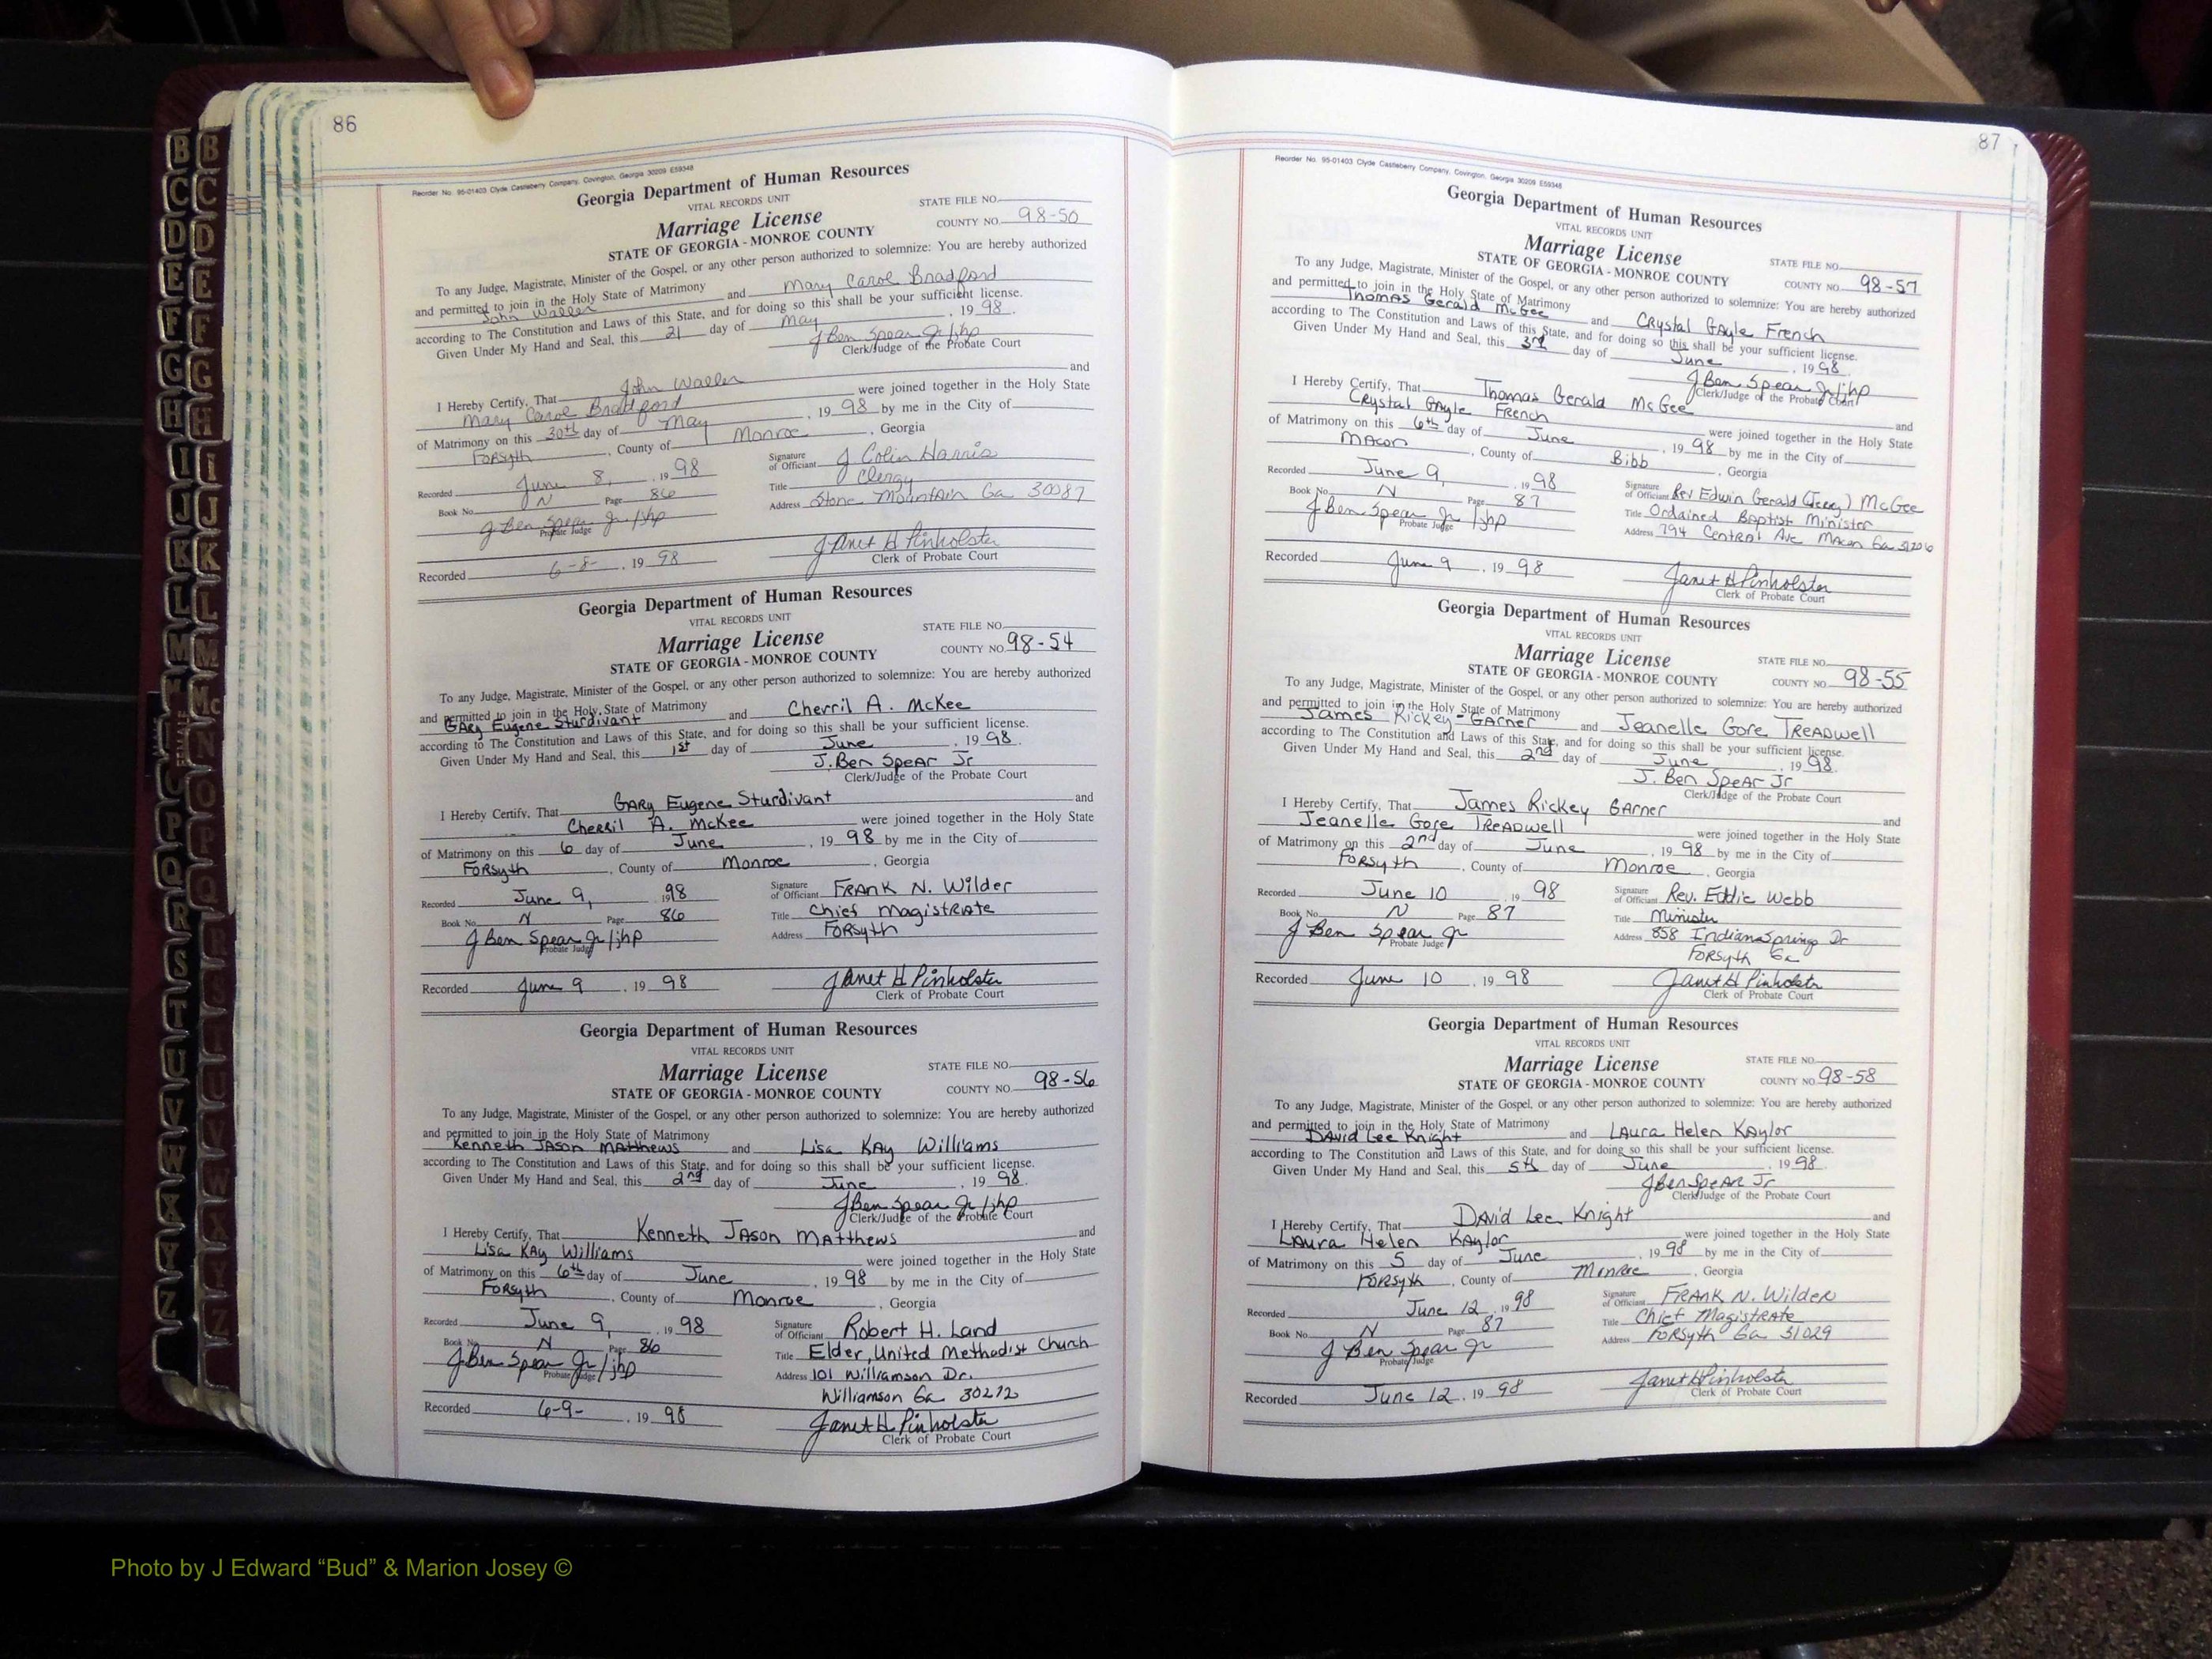 86
Reorder No. 95-01403 Clyde Castleberry Company, Covington, Georgia 30209 E59348
Georgia Department of Human Resources
VITAL RECORDS UNIT
STATE FILE NO.
Marriage License
COUNTY NO. 98-50
STATE OF GEORGIA - MONROE COUNTY
To any Judge, Magistrate, Minister of the Gospel, or any other person authorized to solemnize: You are hereby authorized
and permitted to join in the Holy State of Matrimony
John Waller and Mary Carol Bradford
according to The Constitution and Laws of this State, and for doing so this shall be your sufficient license.
Given Under My Hand and Seal, this 21 day of May, 1998.
J Ben Spear Jr/jhp
Clerk/Judge of the Probate Court
I Hereby Certify, That John Waller and
Mary Carol Bradford were joined together in the Holy State
of Matrimony on this 30th day of May, 1998 by me in the City of
Forsyth, County of Monroe, Georgia
Recorded June 8, 1998
Signature of Officiant J Colin Harris
Book No. N Page 86
Title Clergy
Address Stone Mountain Ga 30087
J Ben Spear Jr/jhp
Probate Judge
Janet H Pinholster
Recorded 6-8-, 1998
Clerk of Probate Court
Georgia Department of Human Resources
VITAL RECORDS UNIT
STATE FILE NO.
Marriage License
COUNTY NO. 98-54
STATE OF GEORGIA - MONROE COUNTY
To any Judge, Magistrate, Minister of the Gospel, or any other person authorized to solemnize: You are hereby authorized
and permitted to join in the Holy State of Matrimony
Gary Eugene Sturdivant and Cherril A. McKee
according to The Constitution and Laws of this State, and for doing so this shall be your sufficient license.
Given Under My Hand and Seal, this 1st day of June, 1998.
J. Ben Spear Jr
Clerk/Judge of the Probate Court
I Hereby Certify, That Gary Eugene Sturdivant and
Cherril A. McKee were joined together in the Holy State
of Matrimony on this 6 day of June, 1998 by me in the City of
Forsyth, County of Monroe, Georgia
Recorded June 9, 1998
Signature of Officiant Frank N. Wilder
Book No. N Page 86
Title Chief Magistrate
Address Forsyth
J Ben Spear Jr/jhp
Probate Judge
Recorded June 9, 1998
Janet H Pinholster
Clerk of Probate Court
Georgia Department of Human Resources
VITAL RECORDS UNIT
STATE FILE NO.
Marriage License
COUNTY NO. 98-56
STATE OF GEORGIA - MONROE COUNTY
To any Judge, Magistrate, Minister of the Gospel, or any other person authorized to solemnize: You are hereby authorized
and permitted to join in the Holy State of Matrimony
Kenneth Jason Matthews and Lisa Kay Williams
according to The Constitution and Laws of this State, and for doing so this shall be your sufficient license.
Given Under My Hand and Seal, this 2nd day of June, 1998.
J Ben Spear Jr/jhp
Clerk/Judge of the Probate Court
I Hereby Certify, That Kenneth Jason Matthews and
Lisa Kay Williams were joined together in the Holy State
of Matrimony on this 6th day of June, 1998 by me in the City of
Forsyth, County of Monroe, Georgia
Recorded June 9, 1998
Signature of Officiant Robert H. Land
Book No. N Page 86
Title Elder, United Methodist Church
J Ben Spear Jr/jhp
Probate Judge
Address 101 Williamson Dr.
Williamson Ga 30292
Recorded 6-9-, 1998
Janet H Pinholster
Clerk of Probate Court
87
Reorder No. 95-01403 Clyde Castleberry Company, Covington, Georgia 30209 E59348
Georgia Department of Human Resources
VITAL RECORDS UNIT
Marriage License
STATE FILE NO.
STATE OF GEORGIA - MONROE COUNTY
COUNTY NO. 98-57
To any Judge, Magistrate, Minister of the Gospel, or any other person authorized to solemnize: You are hereby authorized
and permitted to join in the Holy State of Matrimony
Thomas Gerald McGee and Crystal Gayle French
according to The Constitution and Laws of this State, and for doing so this shall be your sufficient license.
Given Under My Hand and Seal, this 3rd day of June, 1998.
J Ben Spear Jr/jhp
Clerk/Judge of the Probate Court
I Hereby Certify, That Thomas Gerald McGee and
Crystal Gayle French were joined together in the Holy State
of Matrimony on this 6th day of June, 1998 by me in the City of
Macon, County of Bibb, Georgia
Recorded June 9, 1998
Signature of Officiant Rev Edwin Gerald (Jerry) McGee
Book No. N Page 87
Title Ordained Baptist Minister
J Ben Spear Jr/jhp
Probate Judge
Address 794 Central Ave Macon Ga 31206
Recorded June 9, 1998
Janet H Pinholster
Clerk of Probate Court
Georgia Department of Human Resources
VITAL RECORDS UNIT
Marriage License
STATE FILE NO.
STATE OF GEORGIA - MONROE COUNTY
COUNTY NO. 98-55
To any Judge, Magistrate, Minister of the Gospel, or any other person authorized to solemnize: You are hereby authorized
and permitted to join in the Holy State of Matrimony
James Rickey Garner and Jeanelle Gore Treadwell
according to The Constitution and Laws of this State, and for doing so this shall be your sufficient license.
Given Under My Hand and Seal, this 2nd day of June, 1998.
J. Ben Spear Jr
Clerk/Judge of the Probate Court
I Hereby Certify, That James Rickey Garner and
Jeanelle Gore Treadwell were joined together in the Holy State
of Matrimony on this 2nd day of June, 1998 by me in the City of
Forsyth, County of Monroe, Georgia
Recorded June 10, 1998
Signature of Officiant Rev. Eddie Webb
Book No. N Page 87
Title Minister
J Ben Spear Jr
Probate Judge
Address 858 Indian Springs Dr
Forsyth Ga
Recorded June 10, 1998
Janet H Pinholster
Clerk of Probate Court
Georgia Department of Human Resources
VITAL RECORDS UNIT
Marriage License
STATE FILE NO.
STATE OF GEORGIA - MONROE COUNTY
COUNTY NO. 98-58
To any Judge, Magistrate, Minister of the Gospel, or any other person authorized to solemnize: You are hereby authorized
and permitted to join in the Holy State of Matrimony
David Lee Knight and Laura Helen Kaylor
according to The Constitution and Laws of this State, and for doing so this shall be your sufficient license.
Given Under My Hand and Seal, this 5th day of June, 1998.
J Ben Spear Jr
Clerk/Judge of the Probate Court
I Hereby Certify, That David Lee Knight and
Laura Helen Kaylor were joined together in the Holy State
of Matrimony on this 5 day of June, 1998 by me in the City of
Forsyth, County of Monroe, Georgia
Recorded June 12, 1998
Signature of Officiant Frank N. Wilder
Book No. N Page 87
Title Chief Magistrate
J Ben Spear Jr
Probate Judge
Address Forsyth Ga 31029
Recorded June 12, 1998
Janet H Pinholster
Clerk of Probate Court
Photo by J Edward “Bud” & Marion Josey ©